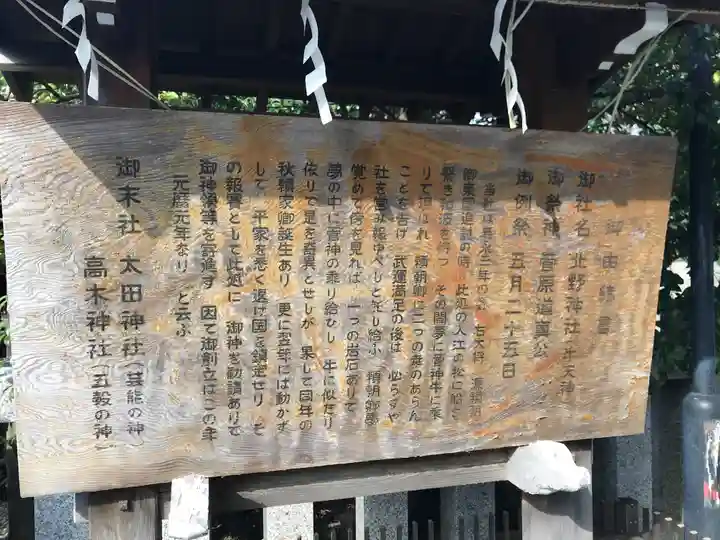 御由緒書
御社名 北野神社(牛天神)
御祭神 菅原道真公
御例祭 五月二十五日
当社は寿永三年の春 右大将 源頼朝
御東国追討の時 此処の入江の松に船を
繋ぎ和波を待つ その間夢に菅神牛に乗
りて現はれ 頼朝卿に二つの幸のあらん
ことを告げ 武運満足の後は 必らずや
社を営み報ゆべしと託し給ふ 頼朝卿夢
覚めて傍を見れば 一つの岩石ありて
夢の中に菅神の乗り給ひし 牛に似たり
依りて是を奇異とせしが 果して同年の
秋頼家卿誕生あり 更に翌年には動かず
して 平家を悉く退け国を鎮定せり そ
の報賽として此処に 御神を勧請ありて
御神領等を許進す 因て御創立はこの年
元暦元年なり と云ふ
御末社 太田神社(芸能の神)
高木神社(五穀の神)